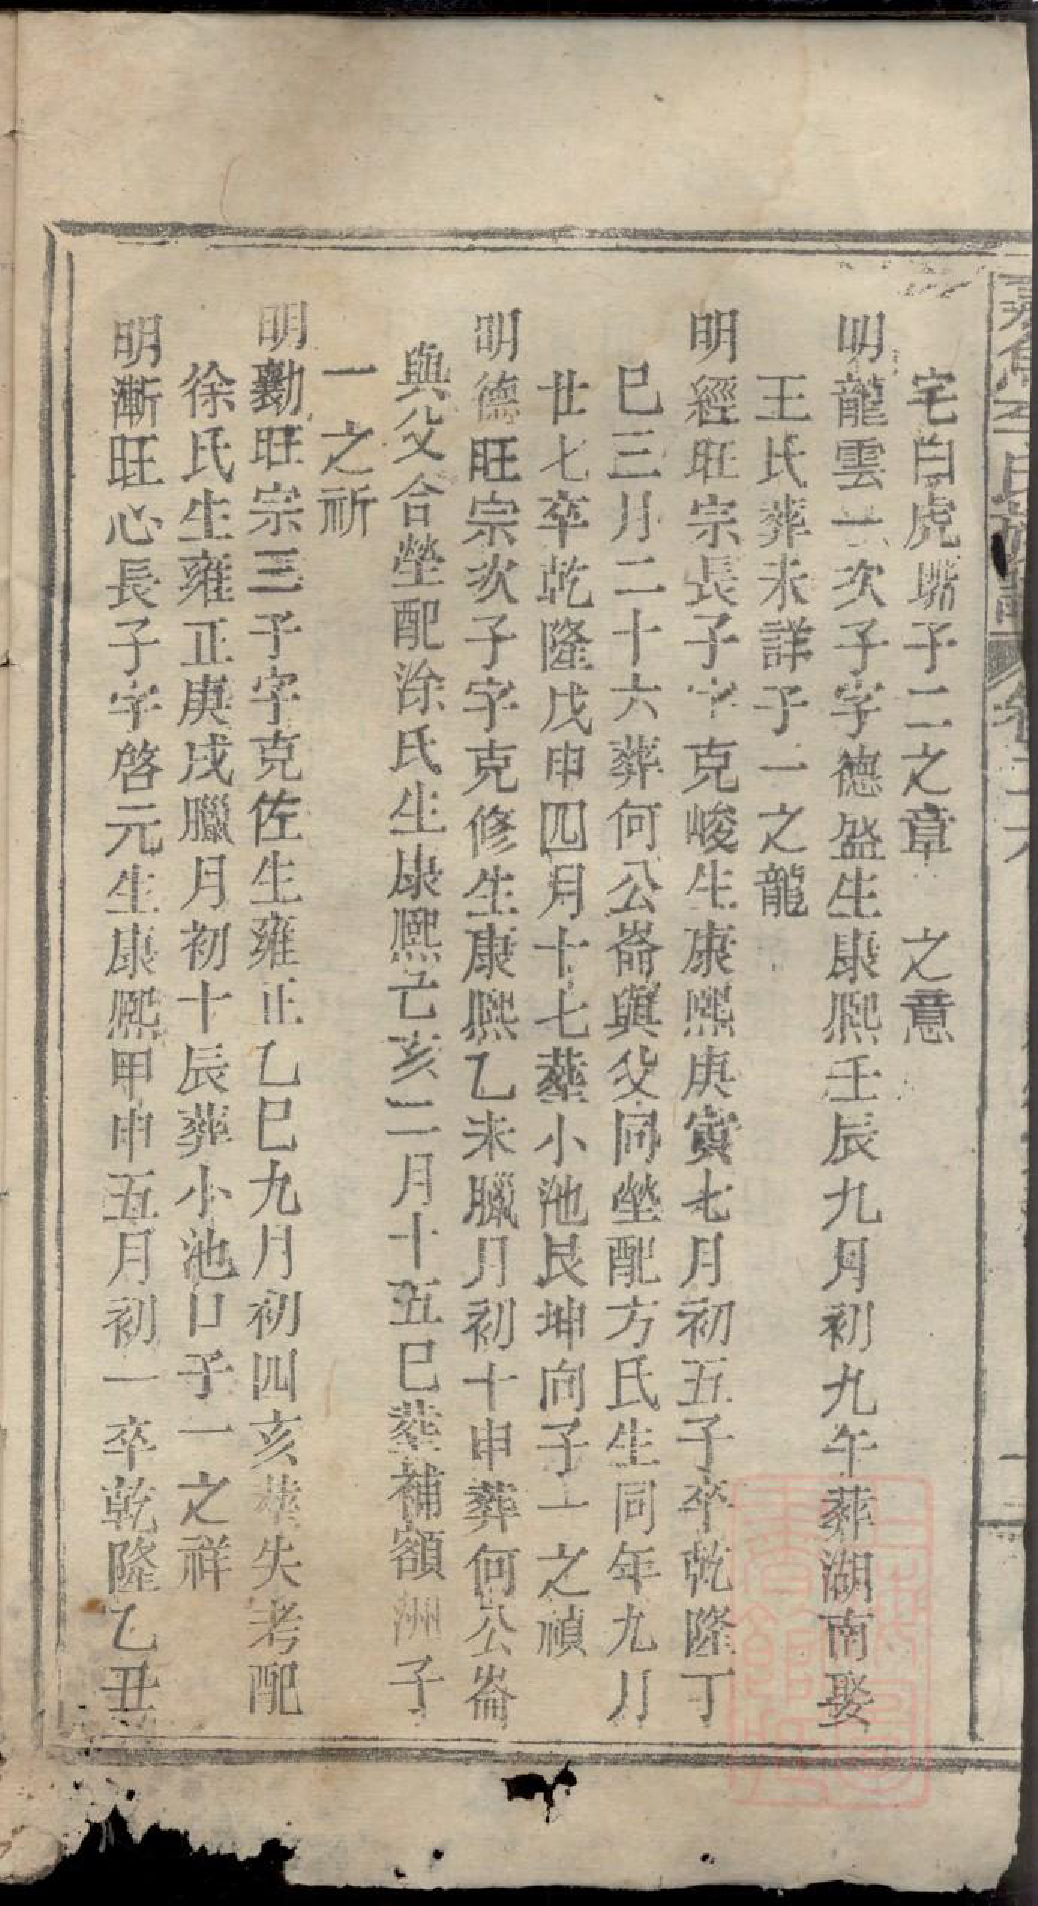 宅白虎嘴子二之章　之意
明龍雲一次子字德盛生康熙壬辰九月初九午葬湖南娶
王氏葬未詳子一之龍
明經旺宗長子字克峻生康熙庚寅七月初五子卒乾隆丁
巳三月二十六葬何公崙與父同塋配方氏生同年九月
廿七卒乾隆戊申四月十七葬小池艮坤向子一之禎
明德旺宗次子字克修生康熙乙未臘月初十申葬何公崙
與父合塋配涂氏生康熙己亥二月十五巳葬補額洲子
一之祈
明勷旺宗三子字克佐生雍正乙巳九月初四亥葬失考配
徐氏生雍正庚戌臘月初十辰葬小池口子一之祥
明漸旺心長子字啓元生康熙甲申五月初一卒乾隆乙丑